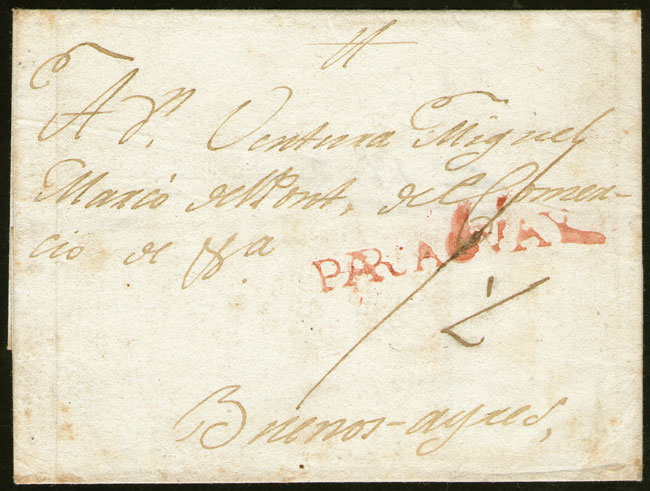 A Dn. Ventura Miguel
Marcó del Pont, del Comer-
cio de
PARAGUAY
Buenos-ayres,